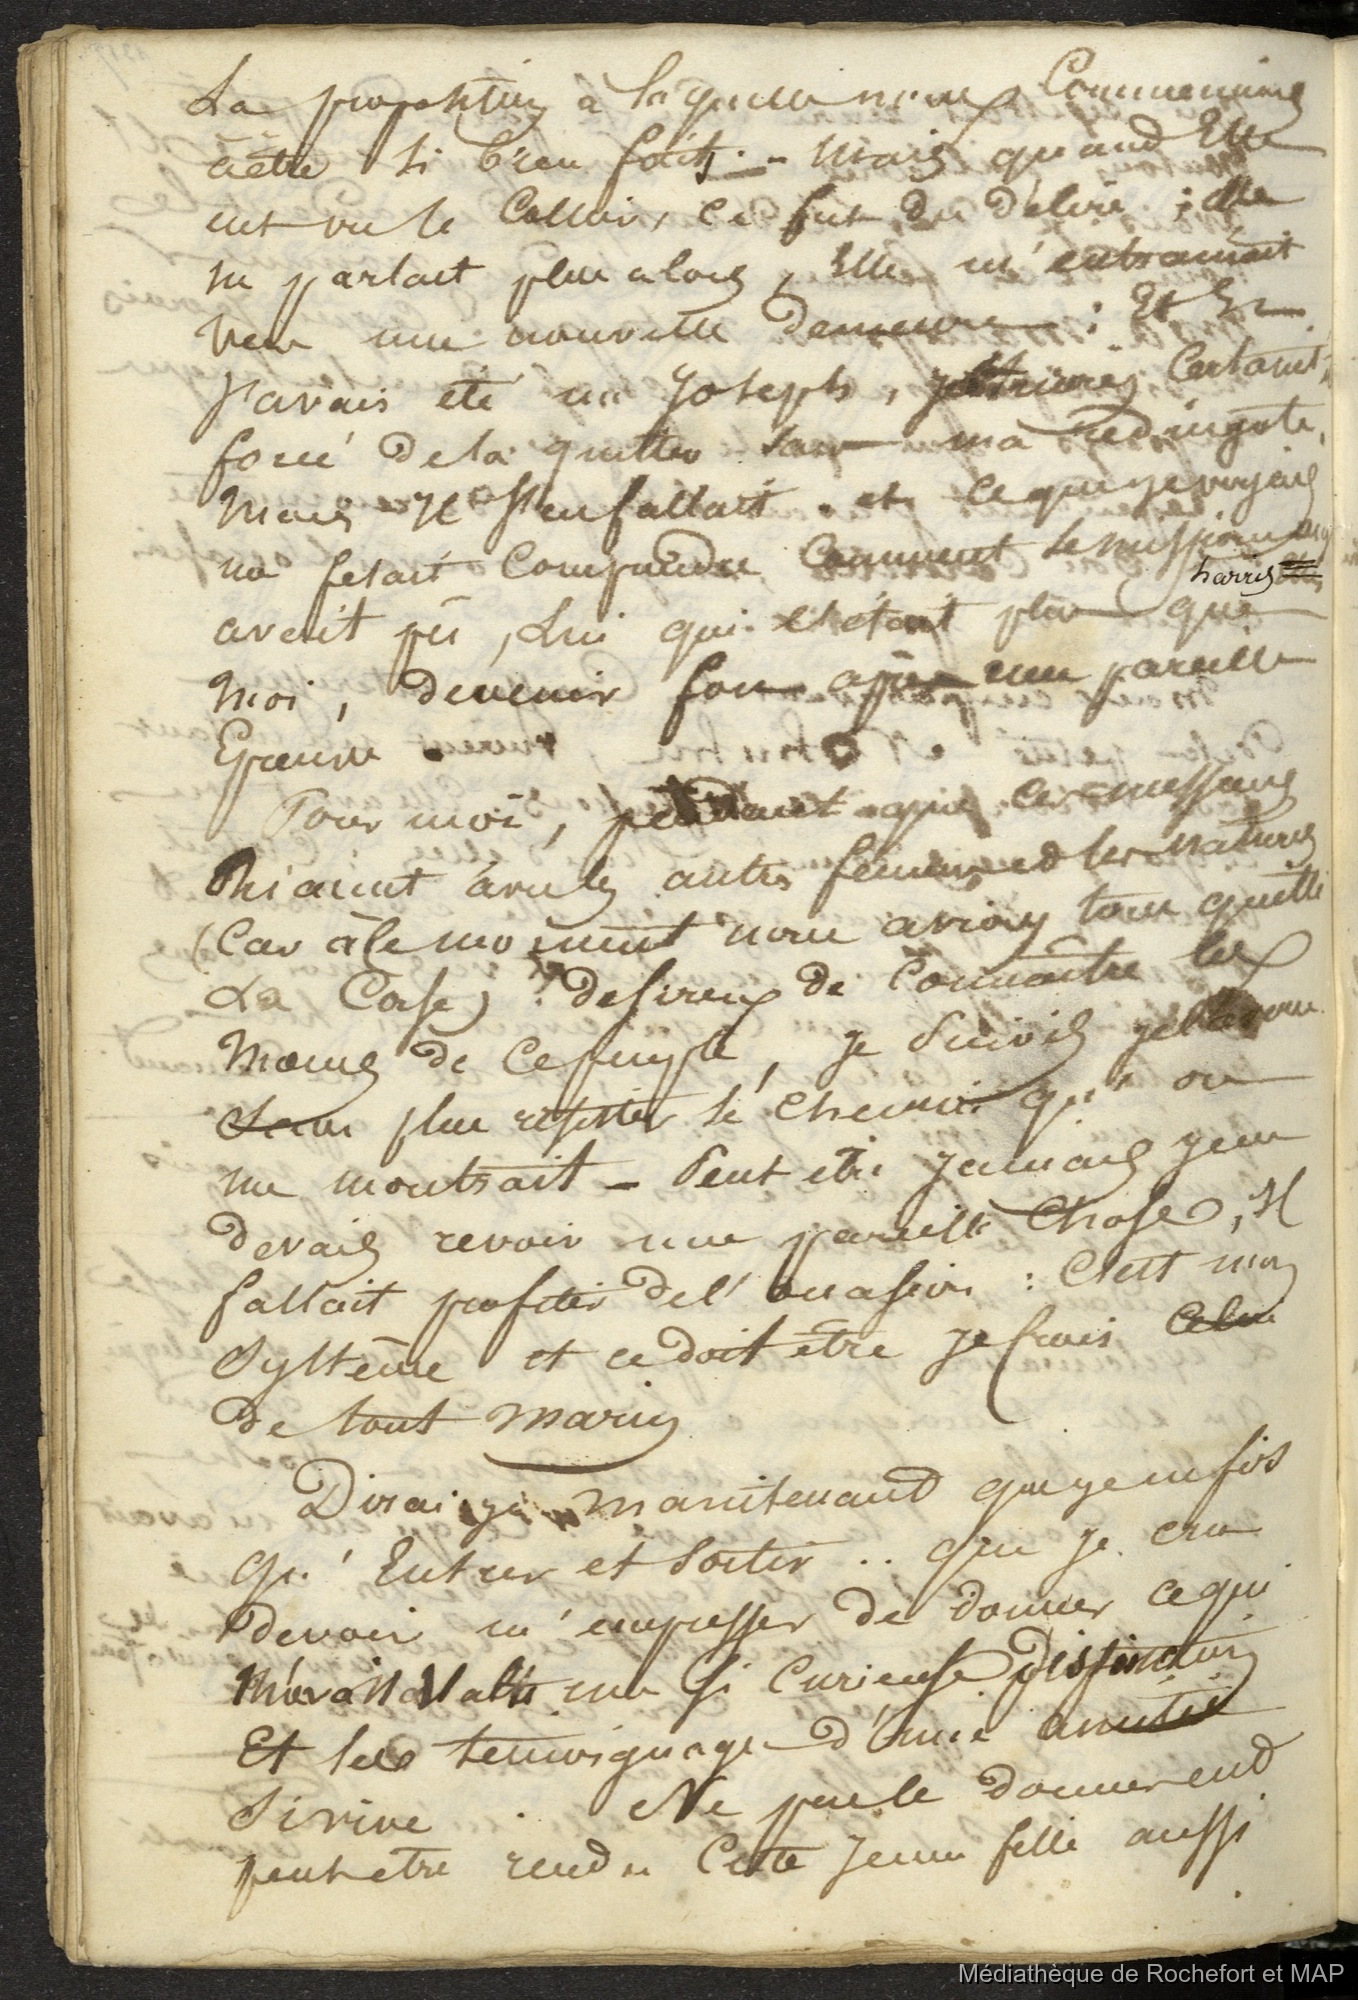 La proposition à laquelle nous Commencions
à être si bien faits. - Mais quand Elle
eut vu le Collier, ce fut du délire ; elle
ne parlait plus alors, Elle m'entrainait
vers une nouvelle demeure : Et Si
j'avais été un Joseph, certainet,
forcé de la quitter sans ma redingote,
Mais Il s'en fallait. et ce que je voyais
me fesait Comprendre Comment le missionnaire
harris
avait pû, lui qui l'était plus que
moi, devenir fou après une pareille
Epreuve.
Pour moi, pendant que ces messieurs
Riaient avec les autres femmes et les naturels
(Car à ce moment nous avions tous quitté
La Case) desireux de Connaître les
Moeurs de Ce peuple, je Suivis
Sans plus resister le chemin qu'on
me montrait - Peut etre jamais je ne
devais revoir une pareille Chose, Il
fallait profiter de l'occasion : C'est mon
Systême et ce doit être je crois Celui
de tout Marin
Dirai je maintenant que je ne fis
qu'Entrer et Sortir .. que je crus
devoir m'empresser de donner ce qui
m'avait valu une Si Curieuse Distinction
Et les temoignages d'une amitié
Si vive . Ne pas le donner eut
peut etre rendu Cette Jeune fille aussi
Médiathèque de Rochefort et MAP